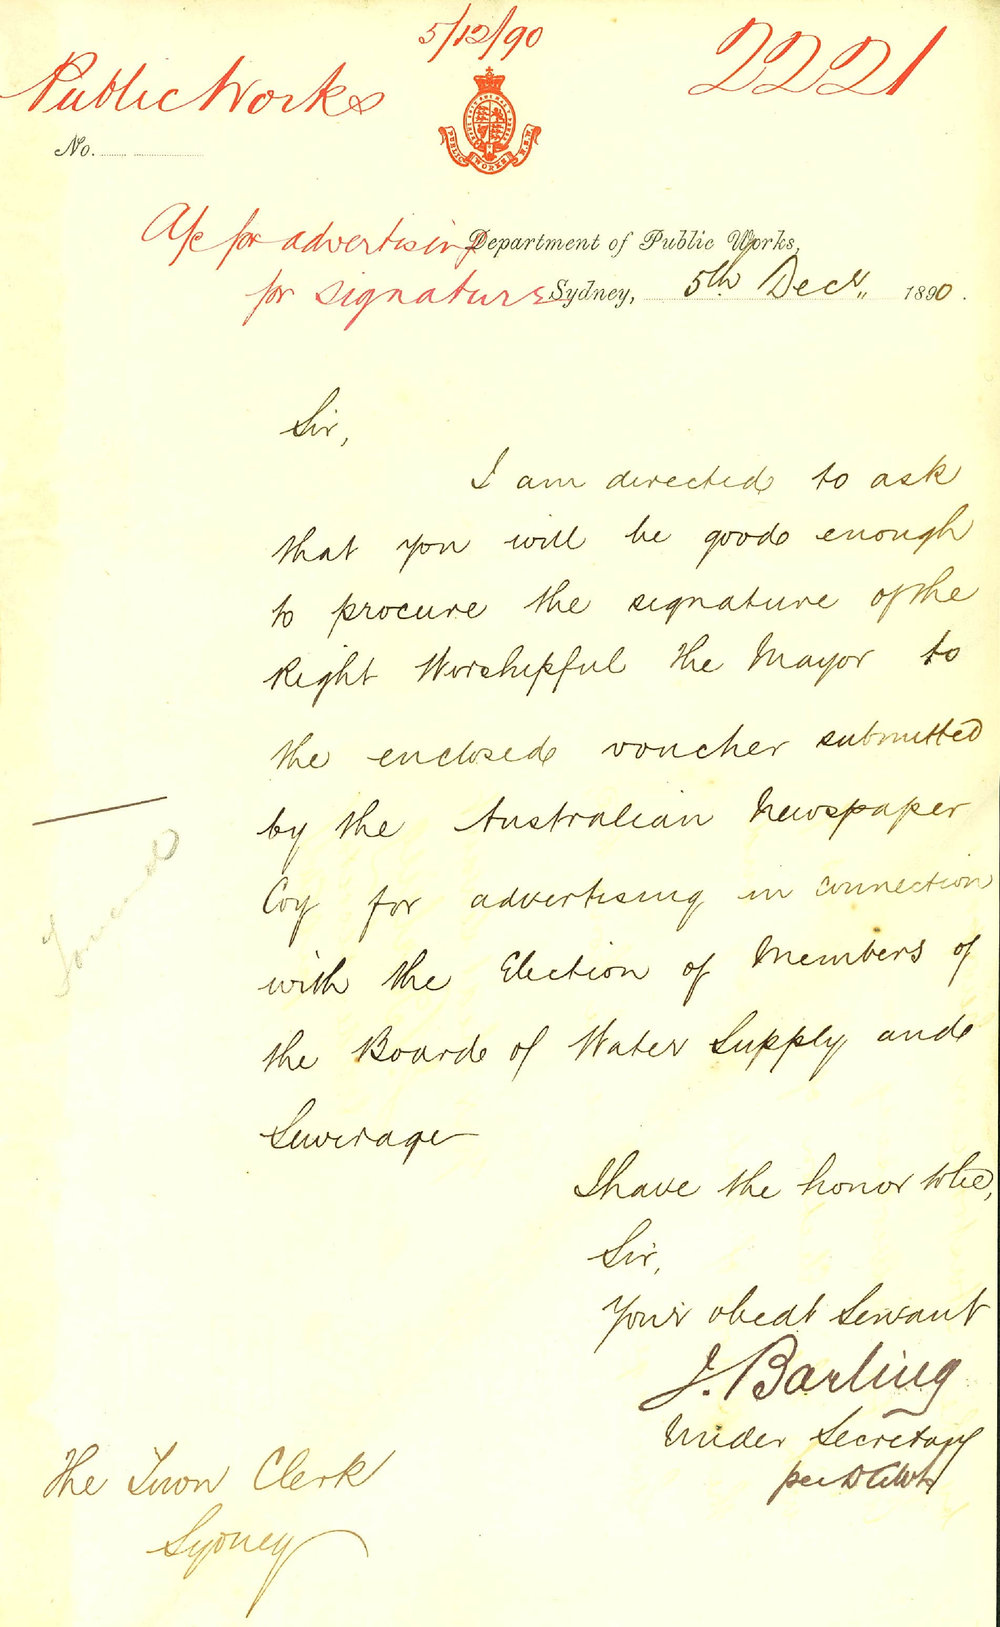 5/12/90
2221
Public Works
No.
PUBLIC WORKS N.S.W.
A/c for advertising
for signature
Department of Public Works,
Sydney, 5th Decr,, 1890.
Sir,
I am directed to ask
that you will be good enough
to procure the signature of the
Right Worshipful the Mayor to
the enclosed voucher submitted
by the Australian Newspaper
Coy for advertising in connection
with the Election of Members of
the Board of Water Supply and
Sewerage
I have the honor to be,
Sir,
Your obedt Servant
J. Barling
Under Secretary
per
The Town Clerk
Sydney